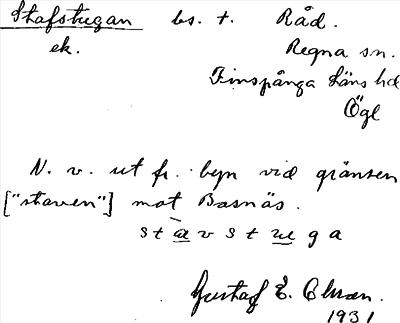 Stafstugan bs. t. Råd.
ek. Regna sn.
Finspånga läns hd
Ögl
N. v. ut fr. byn vid gränsen
["staven"] mot Basnäs.
stavstuga
Gustaf E. Olsson.
1931